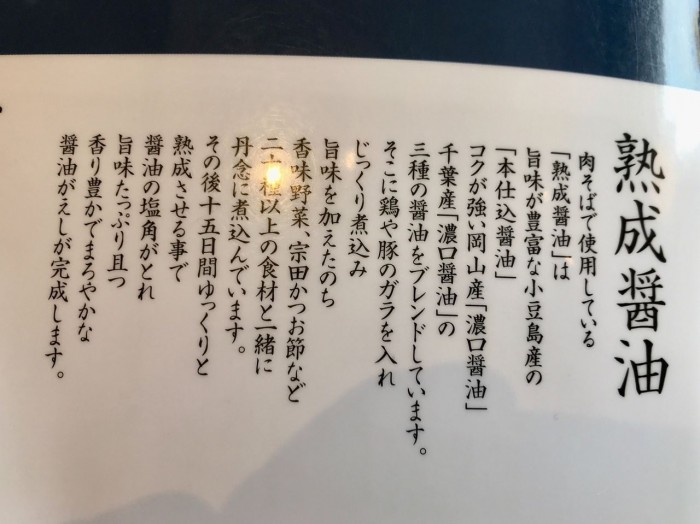 熟成醤油
肉そばで使用している
「熟成醤油」は
旨味が豊富な小豆島産の
「本仕込醤油」
コクが強い岡山産「濃口醤油」
千葉産「濃口醤油」の
三種の醤油をブレンドしています。
そこに鶏や豚のガラを入れ
じっくり煮込み
旨味を加えたのち
香味野菜、宗田かつお節など
二十種以上の食材と一緒に
丹念に煮込んでいます。
その後十五日間ゆっくりと
熟成させる事で
醤油の塩角がとれ
旨味たっぷり且つ
香り豊かでまろやかな
醤油がえしが完成します。